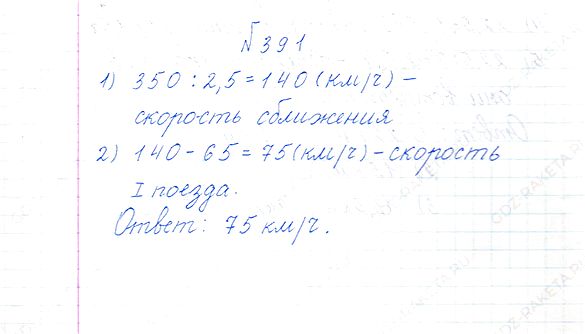 №391
1) 350 : 2,5 = 140 (км/ч) –
скорость сближения
2) 140 - 65 = 75 (км/ч) – скорость
I поезда.
Ответ: 75 км/ч.
GDZ-RAKETA.RU